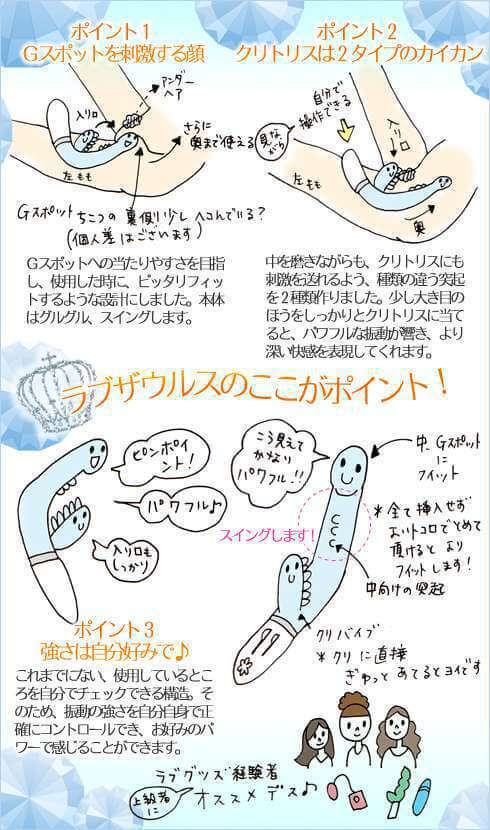 ポイント1
Gスポットを刺激する顔
アンダーヘア
入り口
さらに
奥まで使える
左もも
Gスポットちこつの裏側少しヘコんでいる?
(個人差はございます)
Gスポットへの当たりやすさを目指
し、使用した時に、ピッタリフィッ
トするような設計にしました。本体
はグルグル、スイングします。
ポイント2
クリトリスは2タイプのカイカン
自分で
操作できる
見ながら
入り口
左もも
奥
中を磨きながらも、クリトリスにも
刺激を送れるよう、種類の違う突起
を2種類作りました。少し大き目の
ほうをしっかりとクリトリスに当て
ると、パワフルな振動が響き、より
深い快感を表現してくれます。
ラブザウルスのここがポイント!
ピンポイ
ント!
パワフル♪
入り口も
しっかり
ころ見えて
かなり
パワフル!!
中、Gスポット
に
フィット
スイングします!
*全て挿入せず
よいトコロでとめて
頂けると より
フィットします!
中向けの突起
クリバイブ
*クリに直接
ぎゅっと あてるとヨイです
ポイント3
強さは自分好みで♪
これまでにない、使用しているとこ
ろを自分でチェックできる構造。そ
のため、振動の強さを自分自身で正
確にコントロールでき、お好みのパ
ワーで感じることができます。
ラブグッズ経験者
上級者に
オススメデス♪